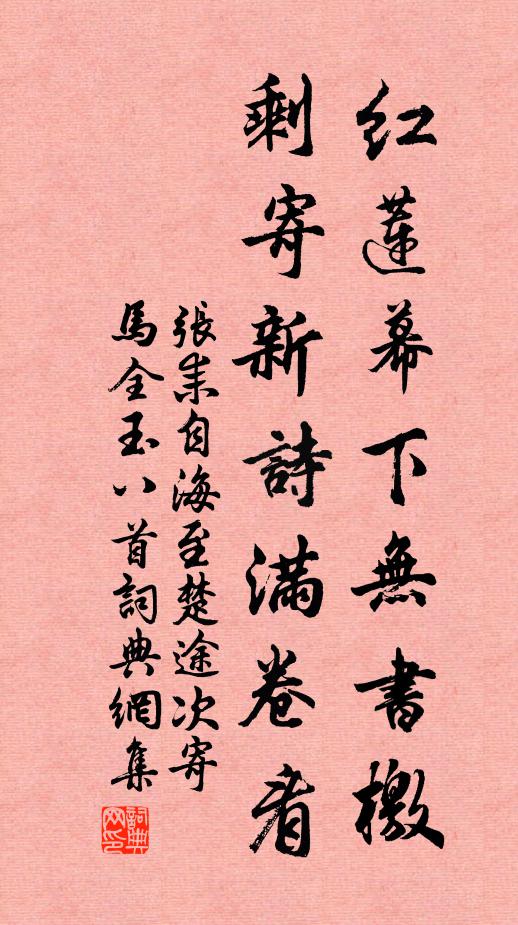 紅蓮幕下無書檄
剩寄新詩滿卷看
張耒自海至楚途次寄
馬全玉八首詞典網集
詞典
网印